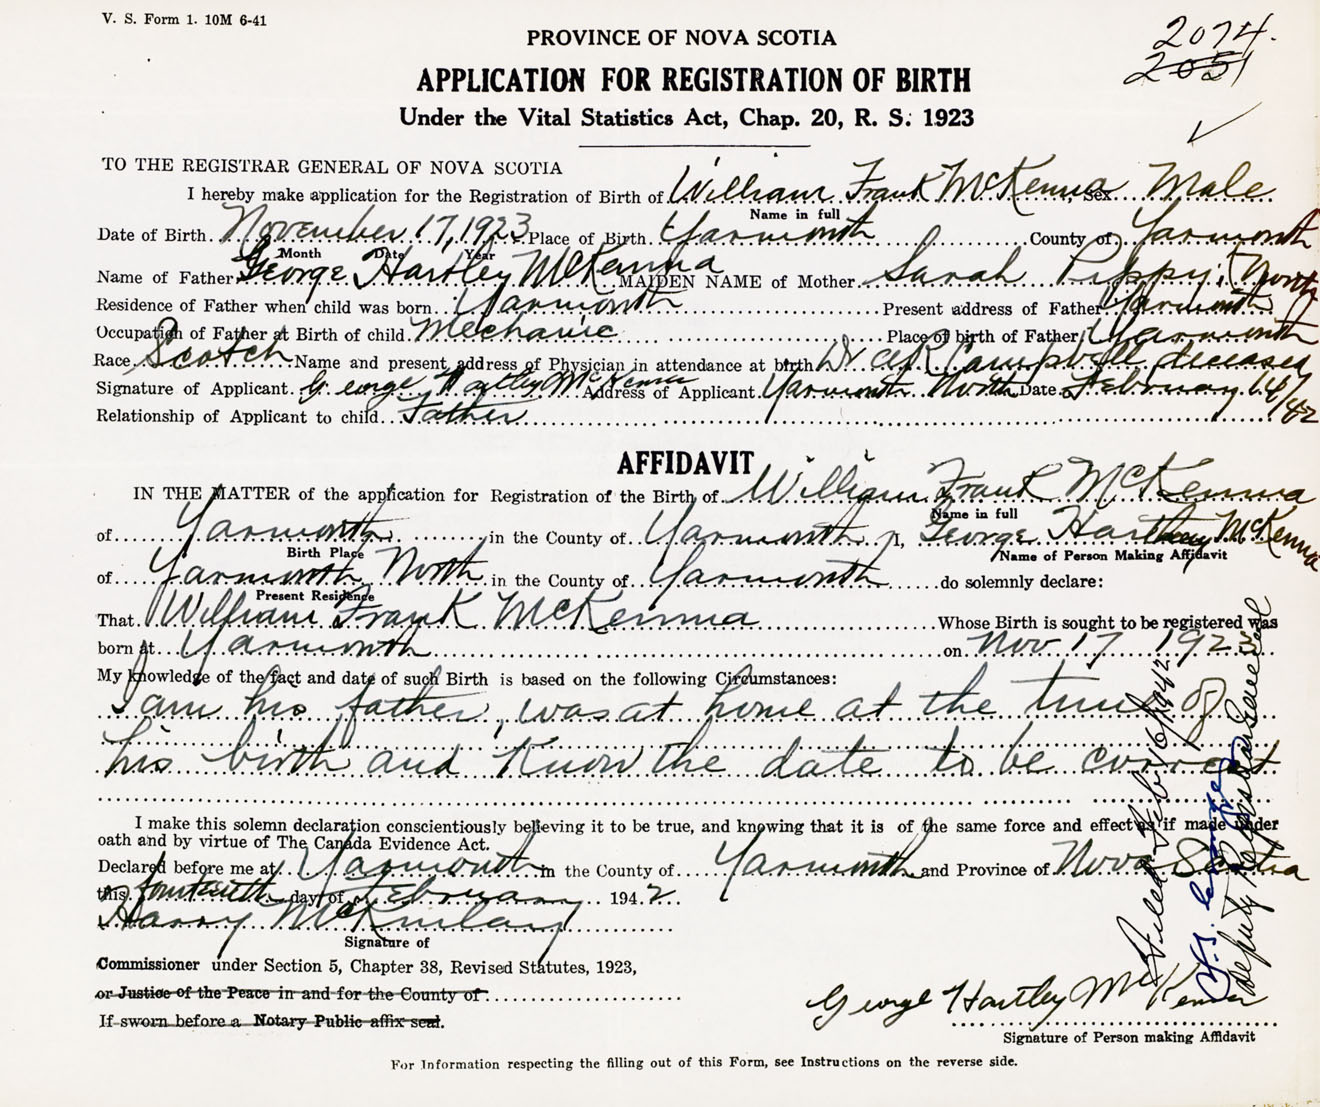 V. S. Form 1. 10M 6-41
2074.
2051
PROVINCE OF NOVA SCOTIA
APPLICATION FOR REGISTRATION OF BIRTH
Under the Vital Statistics Act, Chap. 20, R. S. 1923
TO THE REGISTRAR GENERAL OF NOVA SCOTIA
I hereby make application for the Registration of Birth of William Frank McKenna, Sex Male
Name in full
Date of Birth November 17, 1923 Place of Birth Yarmouth County of Yarmouth
Month Date Year
Name of Father George Hartley McKenna MAIDEN NAME of Mother Sarah Pippy
Residence of Father when child was born Yarmouth Present address of Father Yarmouth North
Occupation of Father at Birth of child Mechanic Place of birth of Father Yarmouth
Race Scotch Name and present address of Physician in attendance at birth Dr Campbell deceased
Signature of Applicant George Hartley McKenna Address of Applicant Yarmouth North Date February 14/42
Relationship of Applicant to child Father
AFFIDAVIT
IN THE MATTER of the application for Registration of the Birth of William Frank McKenna
Name in full
of Yarmouth in the County of Yarmouth, I, George Hartley McKenna
Birth Place Name of Person Making Affidavit
of Yarmouth North in the County of Yarmouth do solemnly declare:
Present Residence
That William Frank McKenna Whose Birth is sought to be registered was
born at Yarmouth on Nov 17 1923
My knowledge of the fact and date of such Birth is based on the following Circumstances:
I am his father, was at home at the time of
his birth and know the date to be correct
I make this solemn declaration conscientiously believing it to be true, and knowing that it is of the same force and effect as if made under
oath and by virtue of The Canada Evidence Act.
Declared before me at Yarmouth in the County of Yarmouth and Province of Nova Scotia
this fourteenth day of February 1942.
Harry McKinlay
Signature of
Commissioner under Section 5, Chapter 38, Revised Statutes, 1923,
or Justice of the Peace in and for the County of
If sworn before a Notary Public affix seal.
George Hartley McKenna
Signature of Person making Affidavit
For Information respecting the filling out of this Form, see Instructions on the reverse side.
Filed Feb. 16/1942
Deputy Registrar General